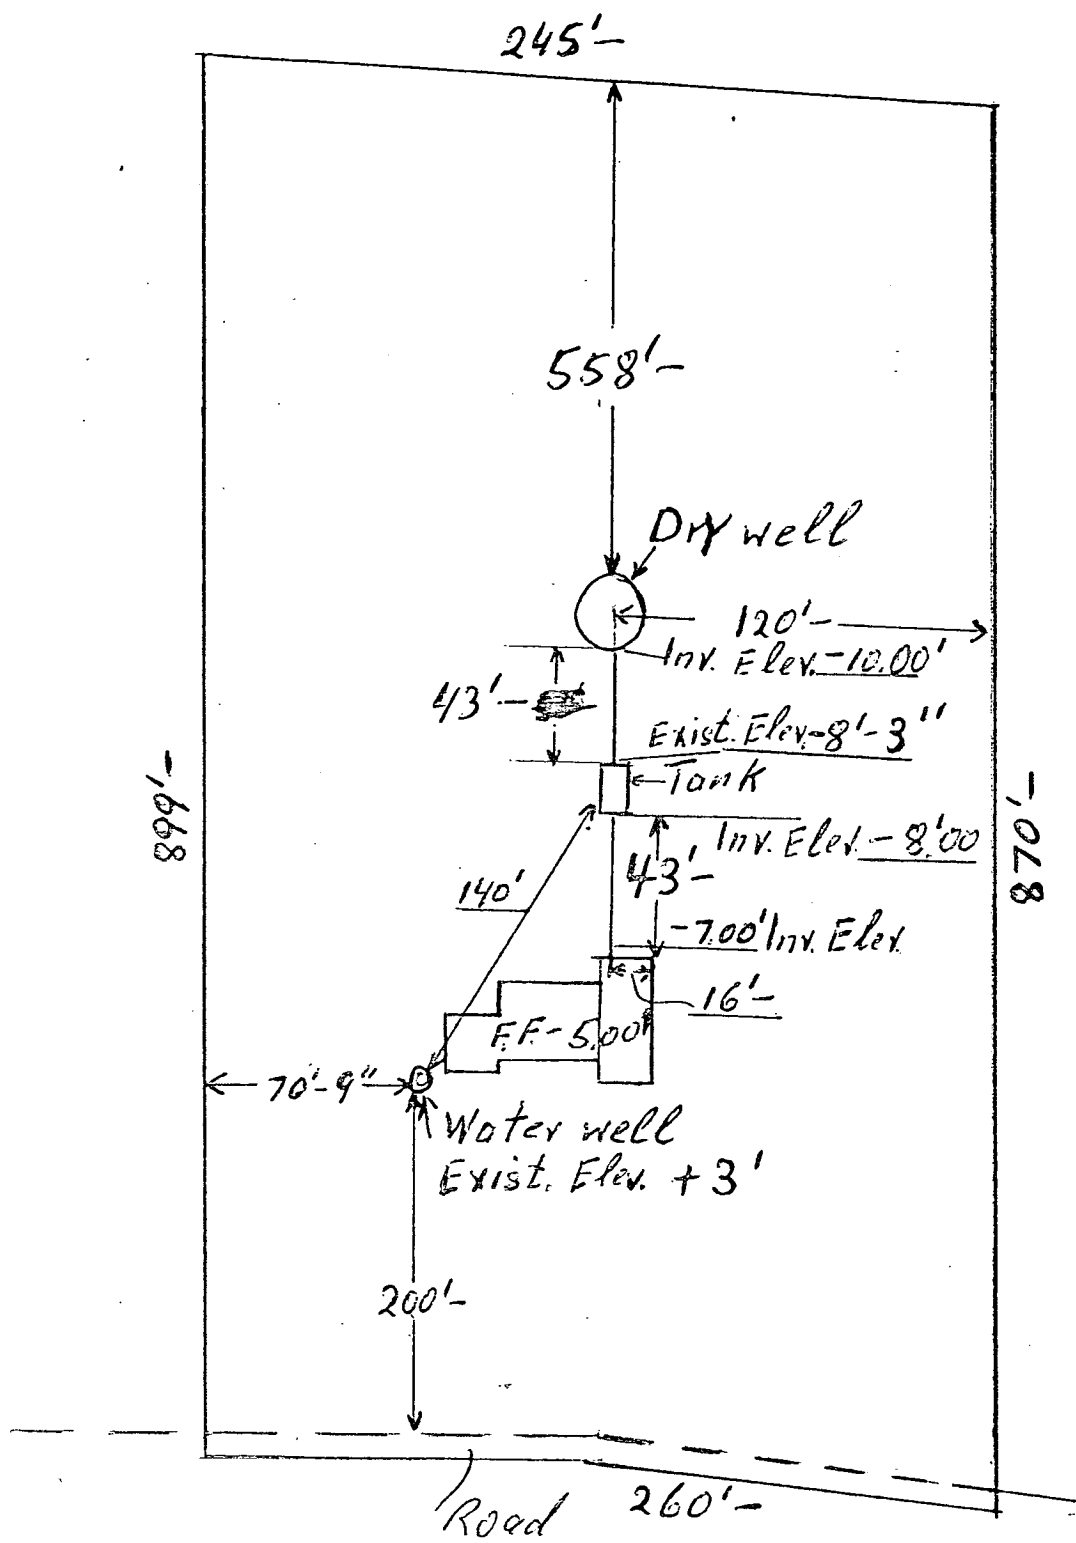 245'-
558'-
Dry well
120'-
Inv. Elev.-10.00'
43'-
Exist. Elev-8'-3"
Tank
899'-
870'-
Inv. Elev.-8.00
43'-
140'
-7.00' Inv. Elev.
16'-
F.F.-5.00'
70'-9"
Water well
Exist. Elev. +3'
200'-
260'-
Road